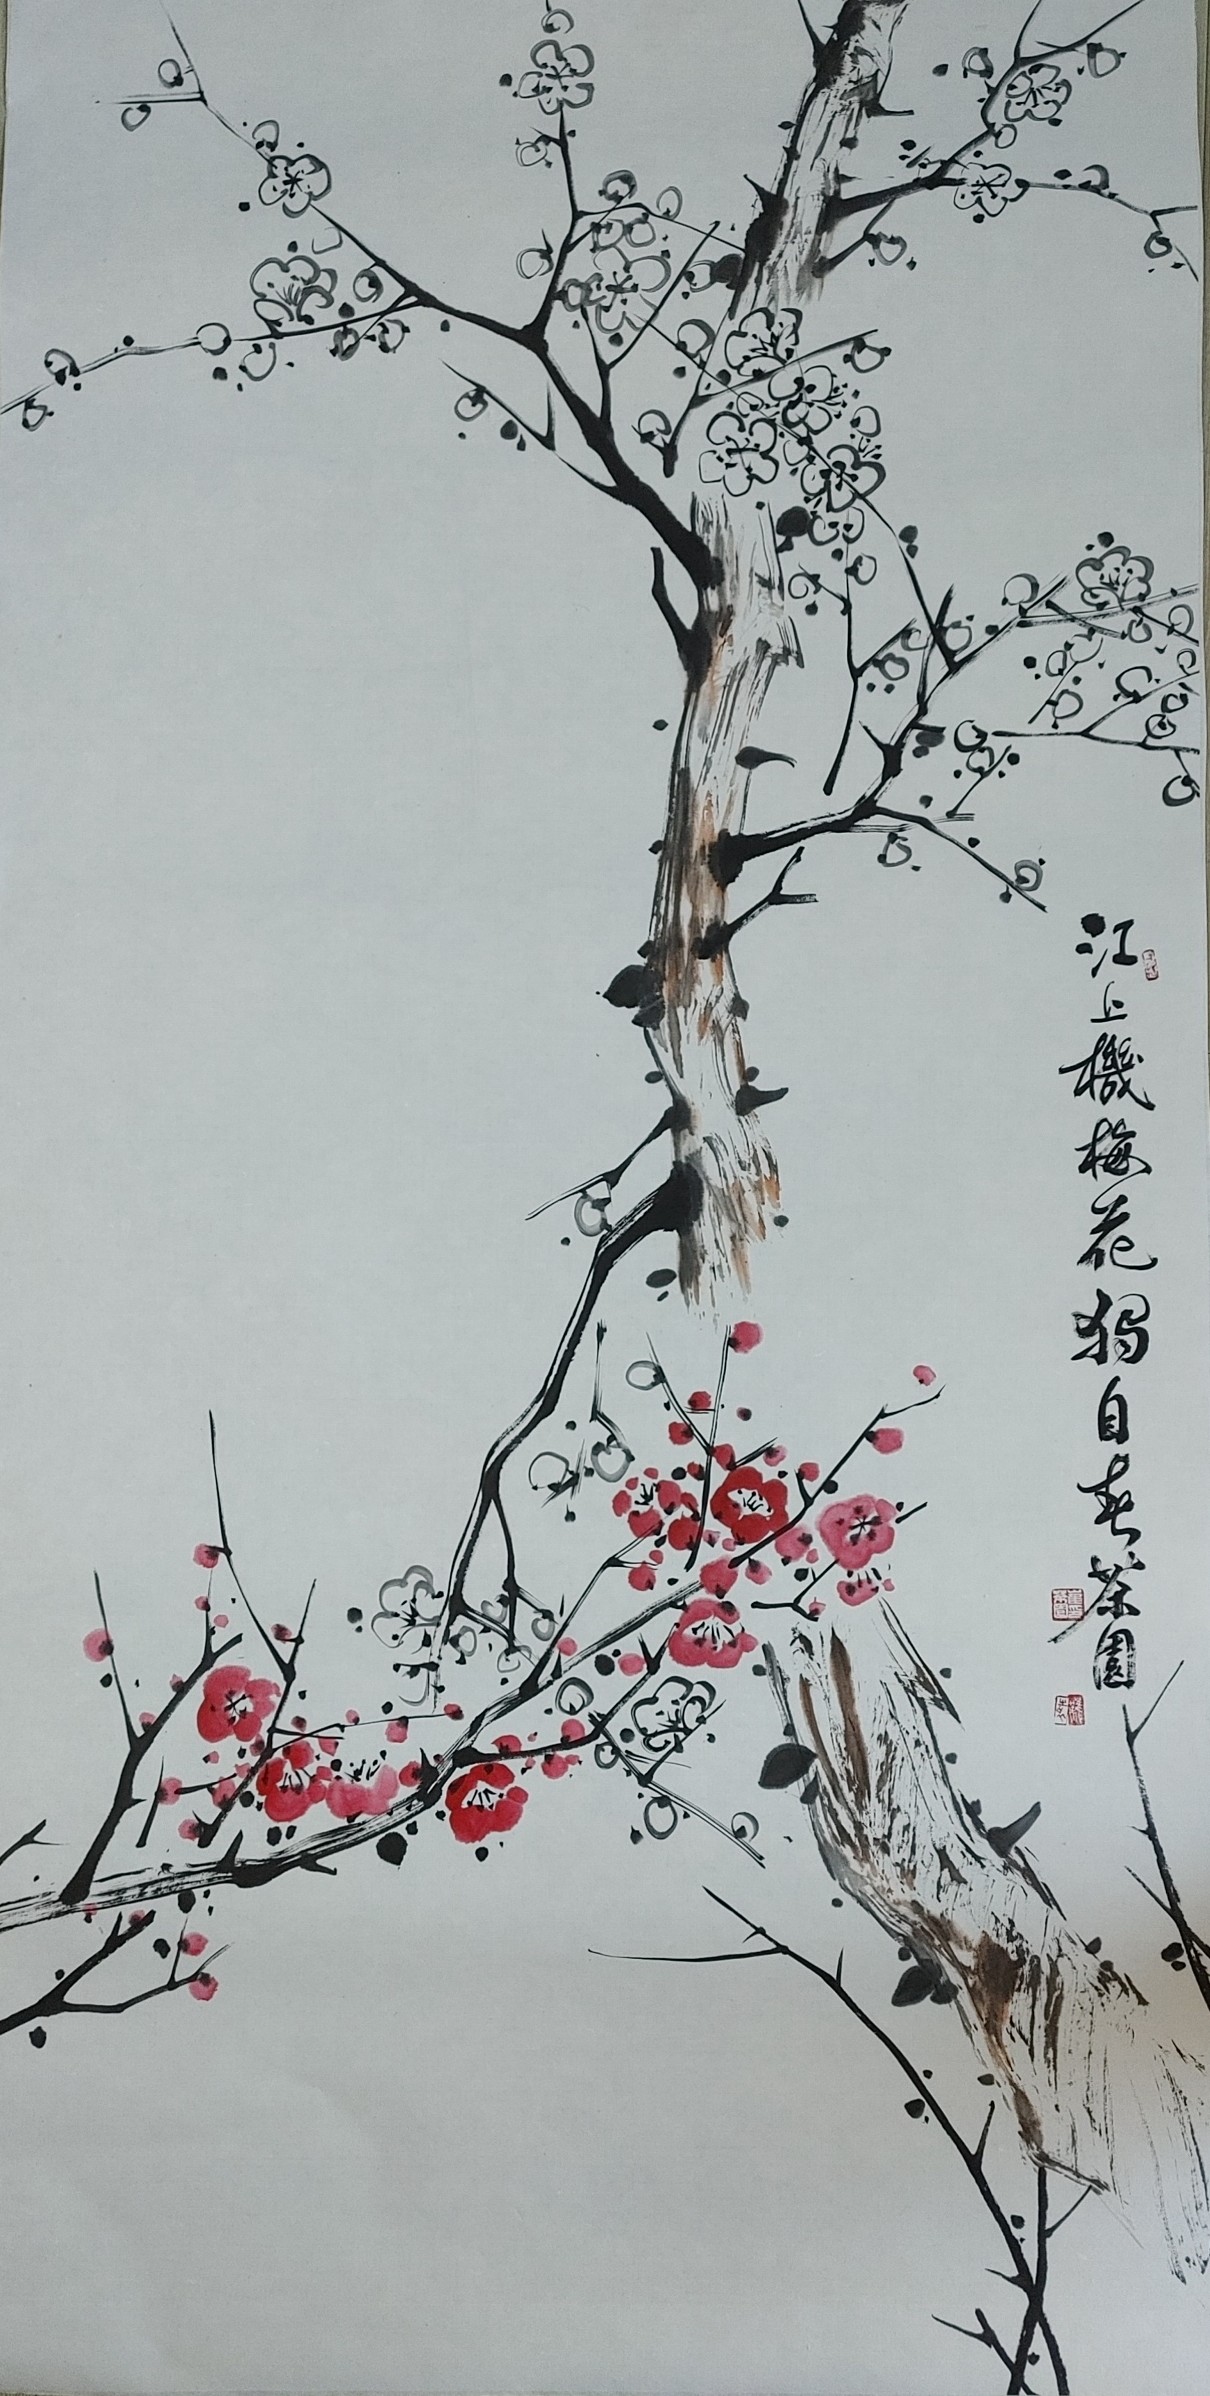 江上機梅花獨自春茶園